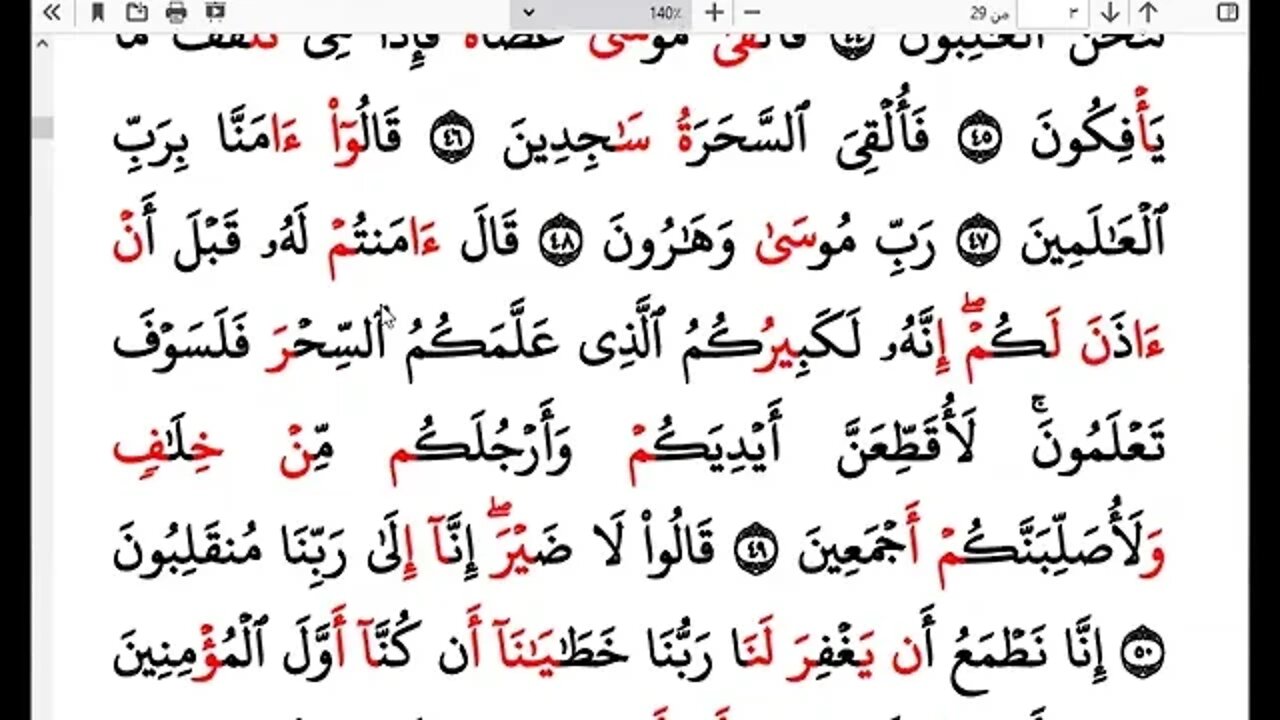 140٪ من 29 ٣
لنحن ٱلۡغَٰلِبُونَ ٤٤ فَأَلۡقَىٰ مُوسَىٰ عَصَاهُ فَإِذَا هِىَ تَلۡقَفُ مَا
يَأۡفِكُونَ ٤٥ فَأُلۡقِىَ ٱلسَّحَرَةُ سَٰجِدِينَ ٤٦ قَالُوٓاْ ءَامَنَّا بِرَبِّ
ٱلۡعَٰلَمِينَ ٤٧ رَبِّ مُوسَىٰ وَهَٰرُونَ ٤٨ قَالَ ءَامَنتُمۡ لَهُۥ قَبۡلَ أَنۡ
ءَاذَنَ لَكُمۡۖ إِنَّهُۥ لَكَبِيرُكُمُ ٱلَّذِى عَلَّمَكُمُ ٱلسِّحۡرَ فَلَسَوۡفَ
تَعۡلَمُونَۚ لَأُقَطِّعَنَّ أَيۡدِيَكُمۡ وَأَرۡجُلَكُم مِّنۡ خِلَٰفٍ
وَلَأُصَلِّبَنَّكُمۡ أَجۡمَعِينَ ٤٩ قَالُواْ لَا ضَيۡرَۖ إِنَّآ إِلَىٰ رَبِّنَا مُنقَلِبُونَ
٥٠ إِنَّا نَطۡمَعُ أَن يَغۡفِرَ لَنَا رَبُّنَا خَطَٰيَٰنَآ أَن كُنَّآ أَوَّلَ ٱلۡمُؤۡمِنِينَ